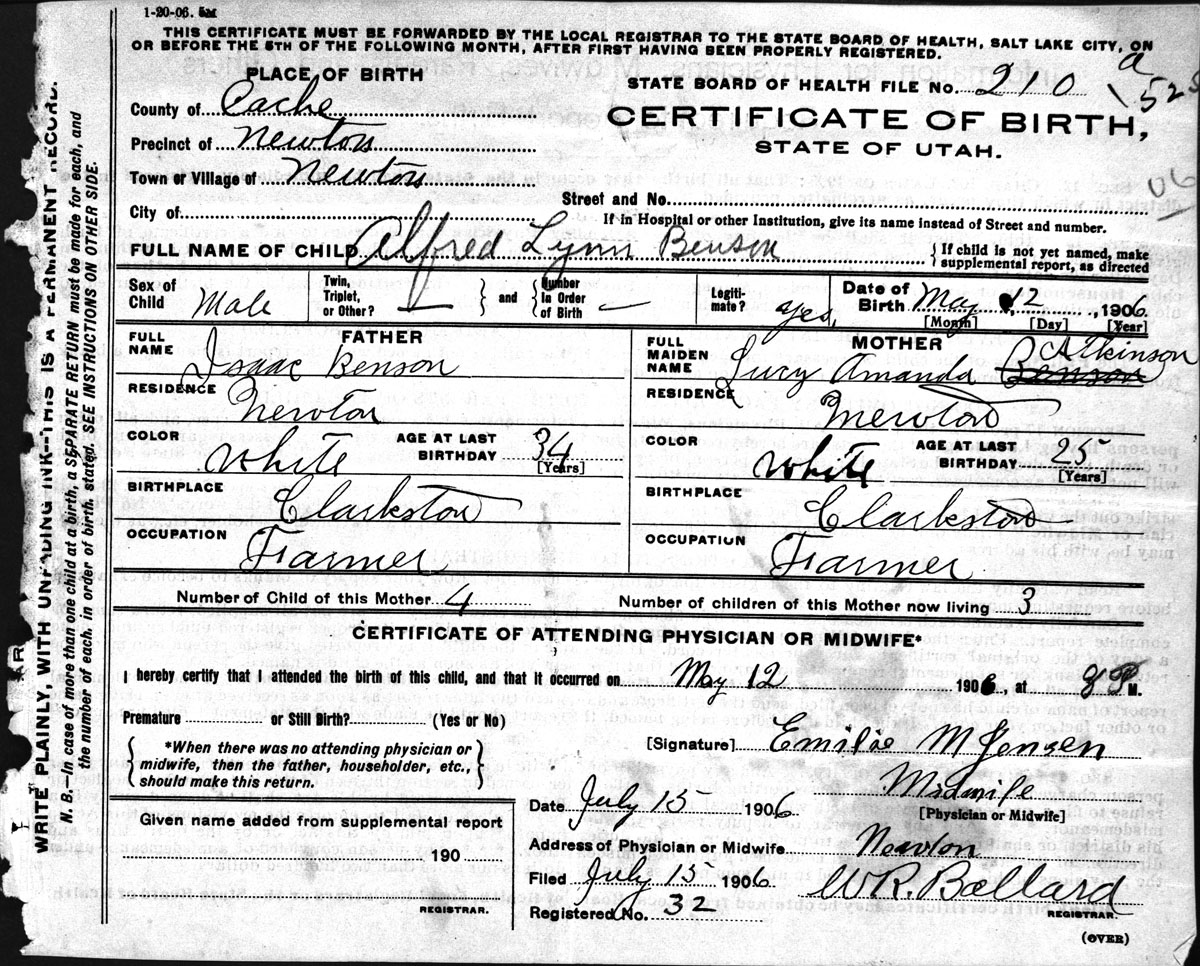 1-20-06. 5M
THIS CERTIFICATE MUST BE FORWARDED BY THE LOCAL REGISTRAR TO THE STATE BOARD OF HEALTH, SALT LAKE CITY, ON
OR BEFORE THE 5TH OF THE FOLLOWING MONTH, AFTER FIRST HAVING BEEN PROPERLY REGISTERED.
PLACE OF BIRTH
STATE BOARD OF HEALTH FILE No. 210 a
County of Cache
CERTIFICATE OF BIRTH,
Precinct of Newton
STATE OF UTAH.
Town or Village of Newton
06
Street and No.
City of
If in Hospital or other Institution, give its name instead of Street and number.
FULL NAME OF CHILD Alfred Lynn Benson
{ If child is not yet named, make
supplemental report, as directed
Sex of Child Male
Twin, Triplet, or Other? } and { Number In Order of Birth —
Legiti- mate? yes,
Date of Birth May 12, 1906
[Month] [Day] [Year]
FATHER
FULL NAME Isaac Benson
RESIDENCE Newton
COLOR White
AGE AT LAST BIRTHDAY 34
[Years]
BIRTHPLACE Clarkston
OCCUPATION Farmer
MOTHER
FULL MAIDEN NAME Lucy Amanda Benson Atkinson
RESIDENCE Newton
COLOR White
AGE AT LAST BIRTHDAY 25
[Years]
BIRTHPLACE Clarkston
OCCUPATION Farmer
Number of Child of this Mother 4
Number of children of this Mother now living 3
CERTIFICATE OF ATTENDING PHYSICIAN OR MIDWIFE*
I hereby certify that I attended the birth of this child, and that it occurred on May 12 1906, at 8 P M.
Premature or Still Birth? (Yes or No)
{ *When there was no attending physician or
midwife, then the father, householder, etc.,
should make this return. }
[Signature] Emilie M Jensen
Midwife
[Physician or Midwife]
Date July 15 1906
Given name added from supplemental report
190
REGISTRAR.
Address of Physician or Midwife Newton
Filed July 15 1906
W R. Ballard
REGISTRAR.
Registered No. 32
(OVER)
WRITE PLAINLY, WITH UNFADING INK—THIS IS A PERMANENT RECORD.
N. B.—In case of more than one child at a birth, a SEPARATE RETURN must be made for each, and
the number of each, in order of birth, stated. SEE INSTRUCTIONS ON OTHER SIDE.